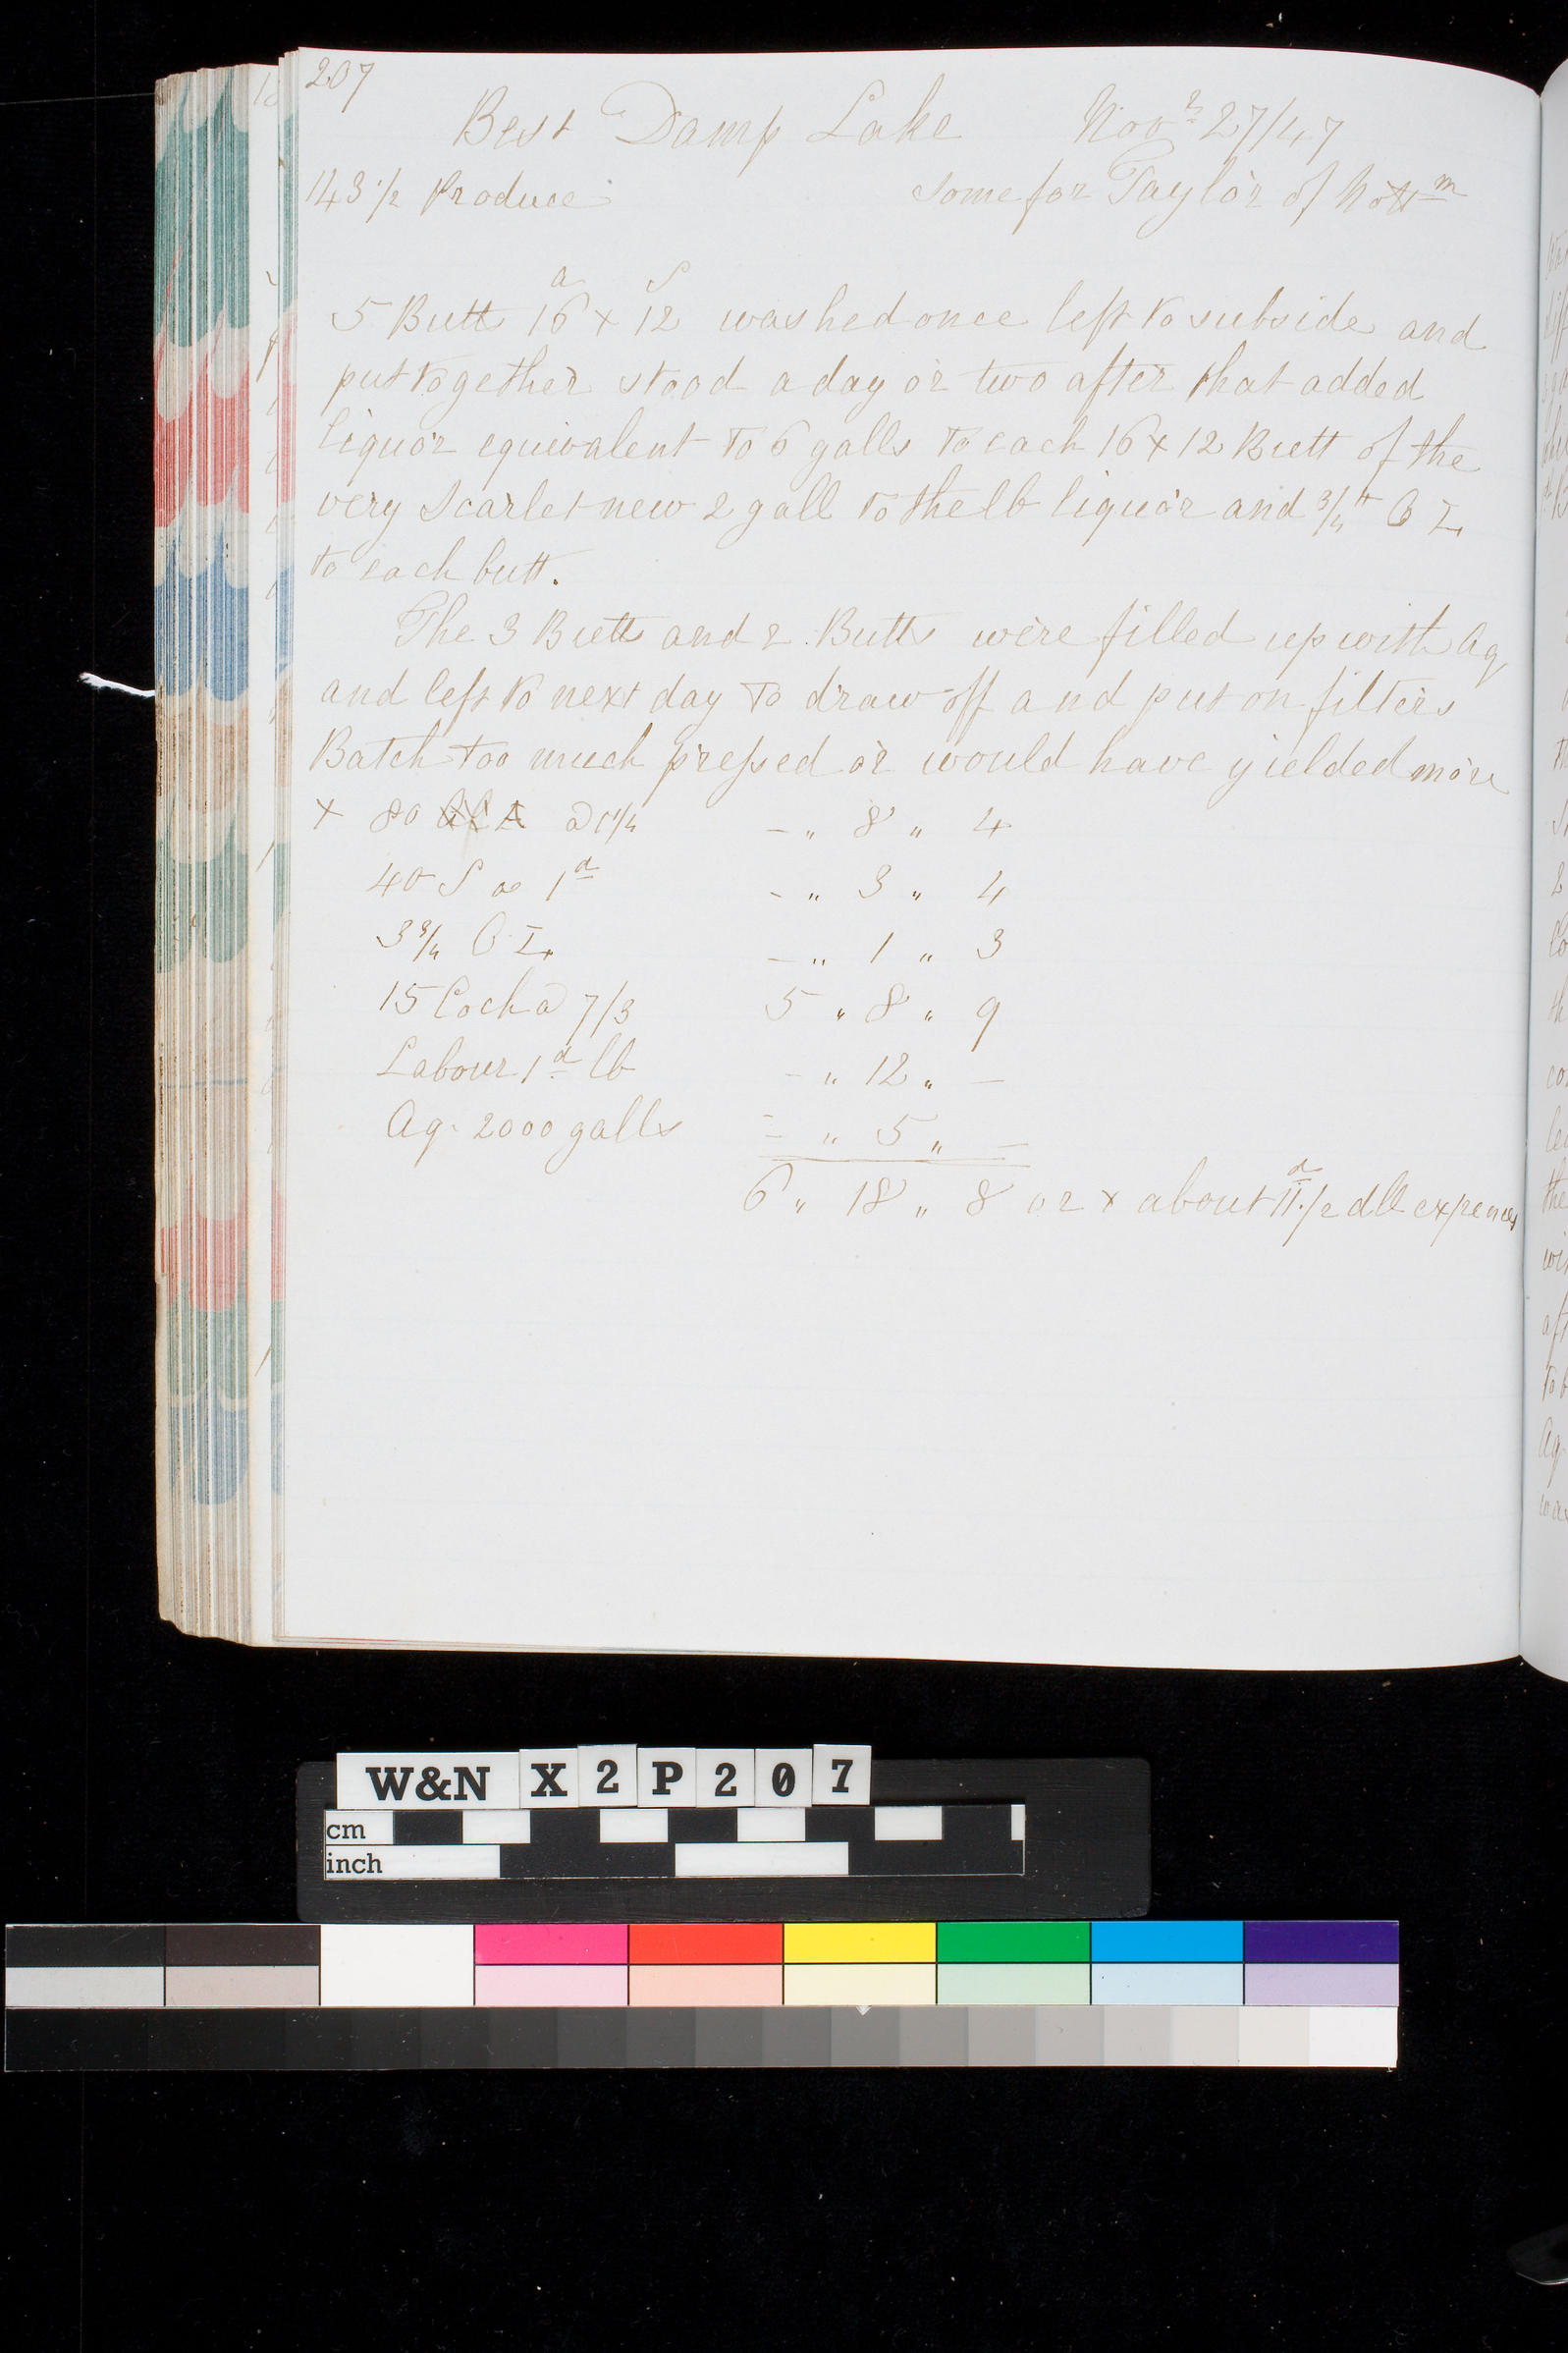 207
Best Damp Lake Nov r 27/47
143 1/2 Produce some for Taylor of Nottm
a S
5 Butt 16 x 12 washed once left to subside and
put together stood a day or two after that added
liquor equivalent to 6 galls to each 16 x 12 Butt of the
very Scarlet new 2 gall to the lb liquor and 3/4 lb
to each butt.
The 3 Butts and 2 Butts were filled up with Aq
and left to next day to draw off and put on filters
Batch too much pressed or would have yielded more
x 80 @ 1 1/4 - " 8 " 4
40 S @ 1d - " 3 " 4
3 3/4 - " 1 " 3
15 Coch @ 7/3 5 " 8 " 9
Labour 1d lb - " 12 " -
Aq. 2000 galls - " 5 " -
6 " 18 " 8 or x about 11 1/2 d all expences
W&N X 2 P 2 0 7
cm
inch